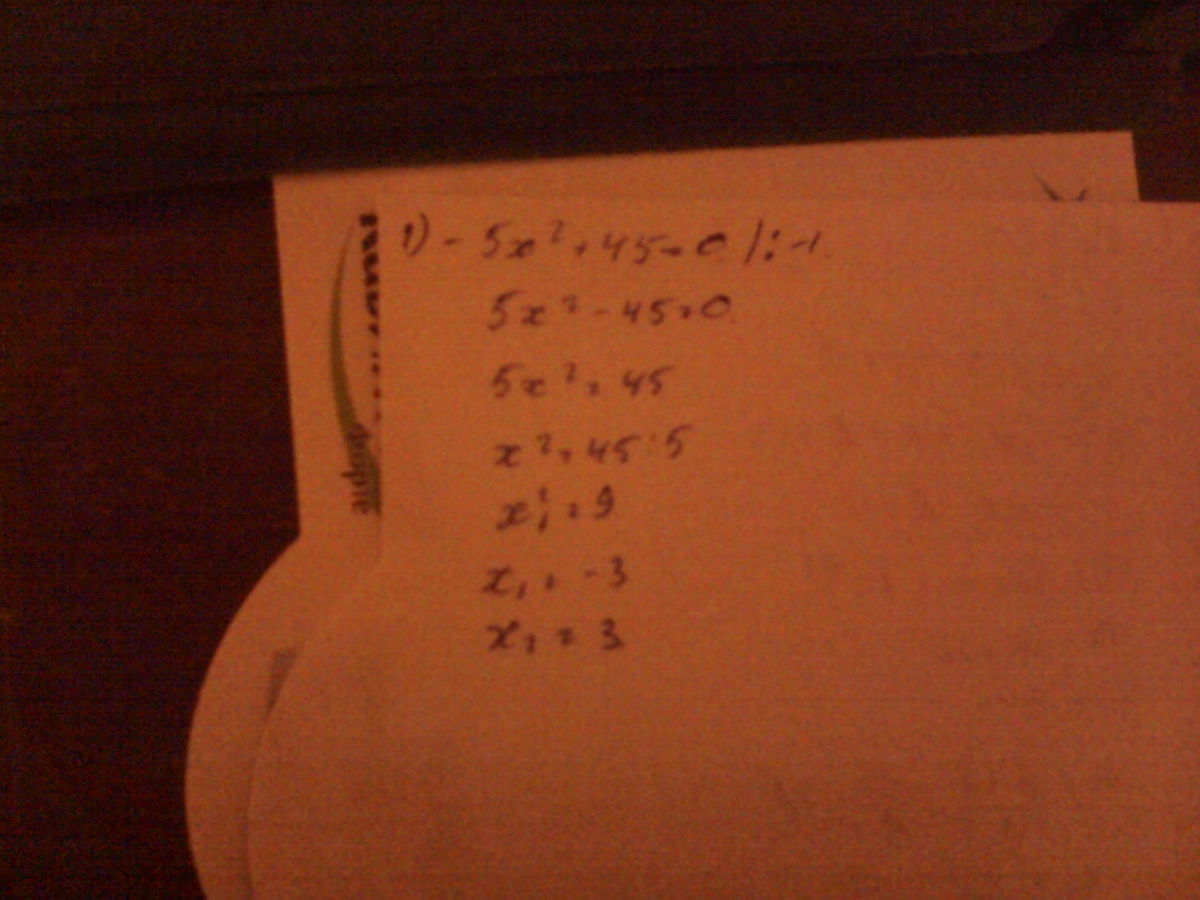 1) - 5x² + 45 = 0 |: -1
5x² - 45 = 0
5x² = 45
x² = 45 : 5
x² = 9
x₁ = -3
x₂ = 3